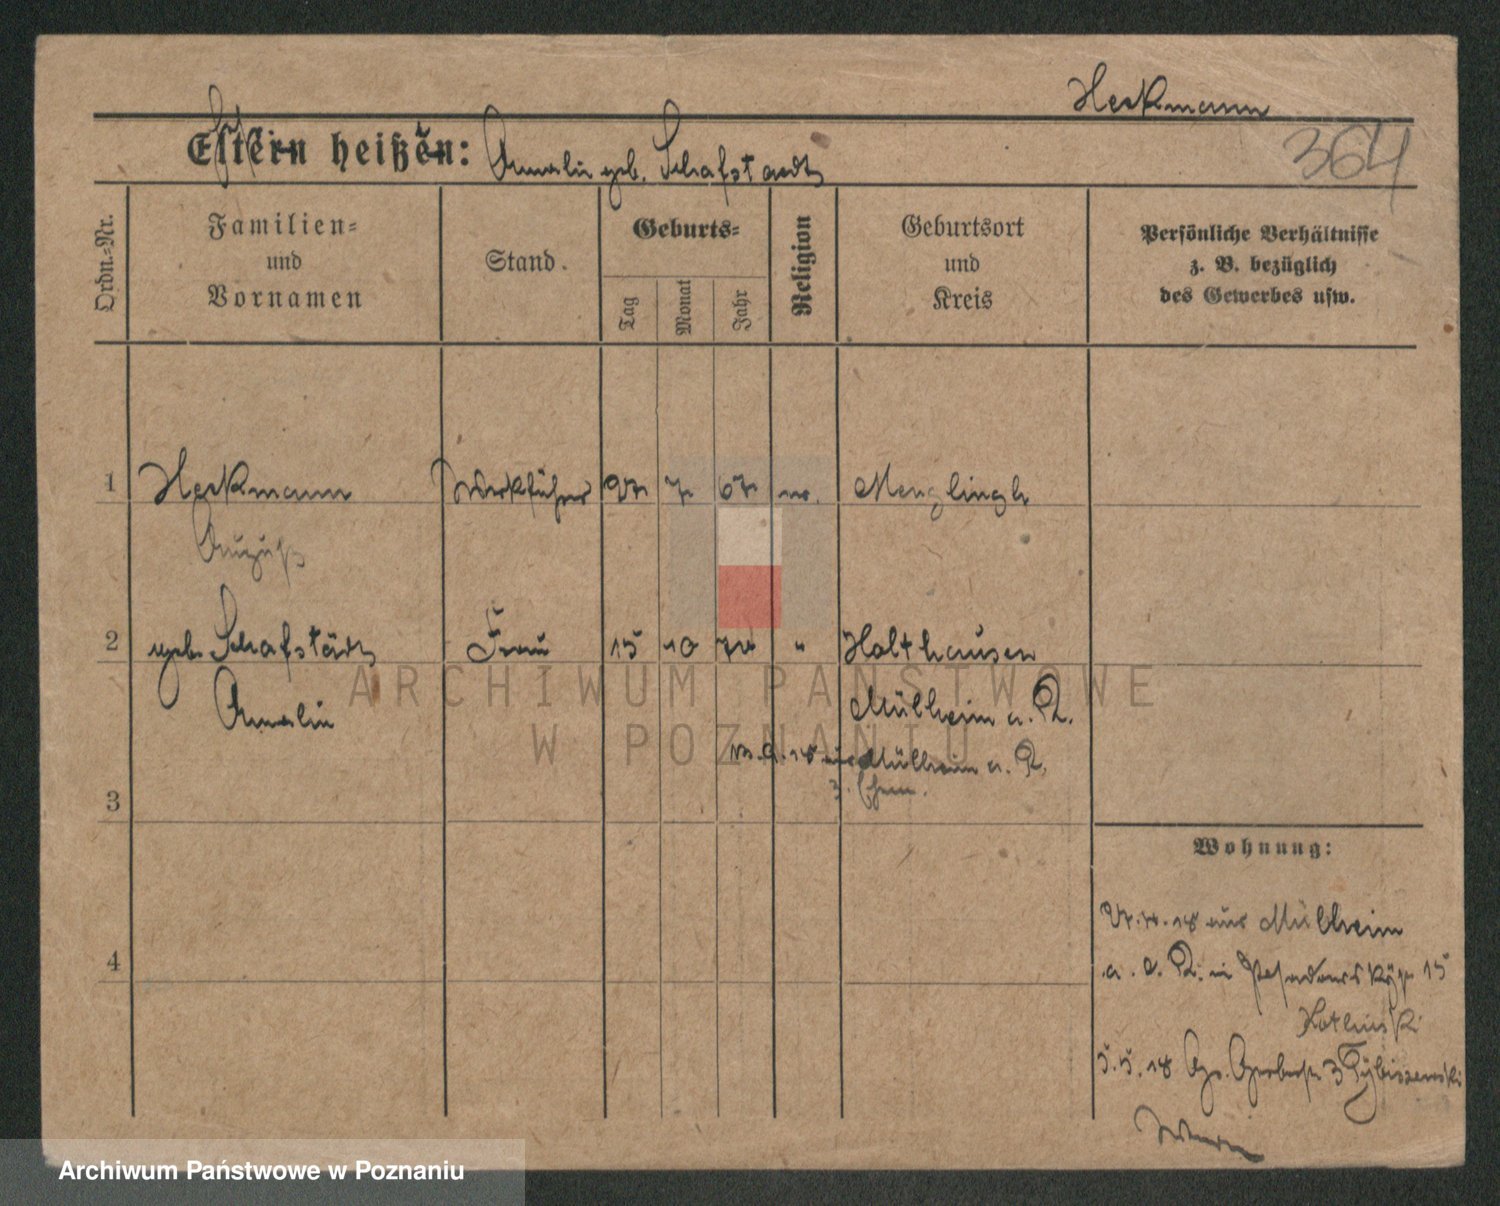 Heckmann
364
Eltern heißen: Amalie geb. Schafstaedt
Ordn.-Nr.
Familien-
und
Vornamen
Stand.
Geburts-
Tag
Monat
Jahr
Religion
Geburtsort
und
Kreis
Persönliche Verhältnisse
z. B. bezüglich
des Gewerbes usw.
1 Heckmann Werkführer 27 7 67
August
2 geb. Schafstädt Frau 15 10 70 " Holthausen
Amalie
Mülheim a. R.
Mülheim a. R.
3
Wohnung:
18 aus Mülheim
a. d. R. in 15
4
5.5.18 3
ARCHIWUM PAŃSTWOWE
W POZNANIU
Archiwum Państwowe w Poznaniu